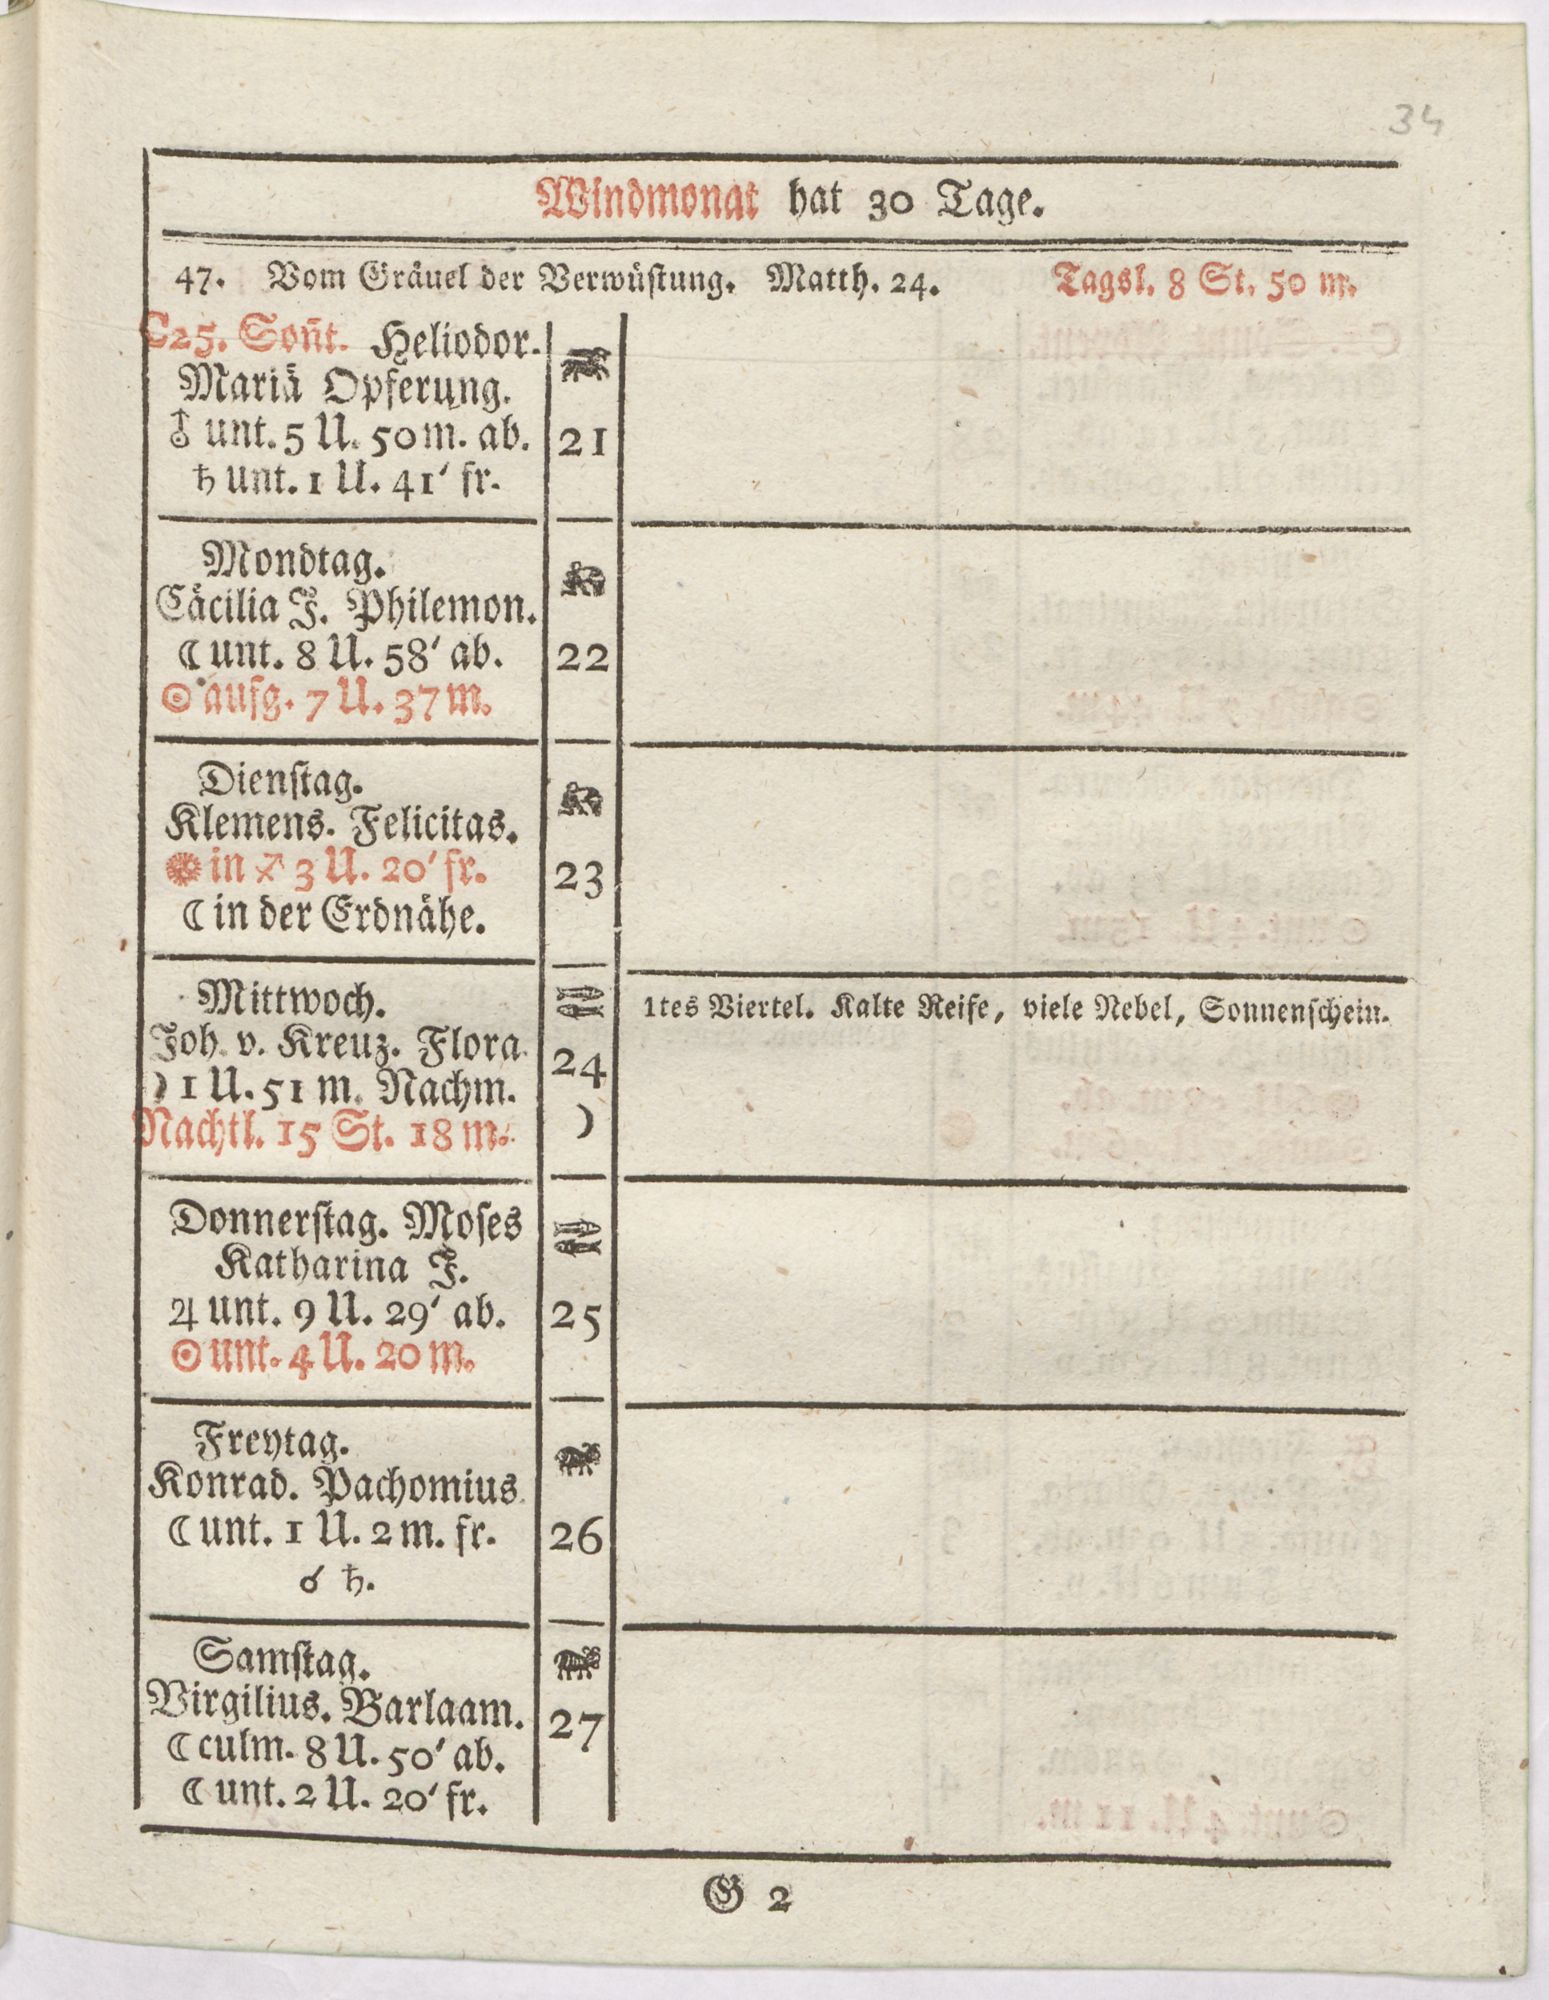 34
Windmonat hat 30 Tage.
47. Vom Gräuel der Verwüstung. Matth. 24. Tagsl. 8 St. 50 m.
C25. Soñt. Heliodor.
Mariä Opferung.
♁ unt. 5 U. 50 m. ab.
♄ unt. 1 U. 41′ fr.
21
Mondtag.
Cäcilia J. Philemon.
☾ unt. 8 U. 58′ ab.
☉ aufg. 7 U. 37 m.
22
Dienſtag.
Klemens. Felicitas.
☉ in ♐ 3 U. 20′ fr.
☾ in der Erdnähe.
23
Mittwoch.
Joh. v. Kreuz. Flora
☽ 1 U. 51 m. Nachm.
Nachtl. 15 St. 18 m.
24
☽
1tes Viertel. Kalte Reife, viele Nebel, Sonnenſchein.
Donnerſtag. Moſes
Katharina J.
♃ unt. 9 U. 29′ ab.
☉ unt. 4 U. 20 m.
25
Freytag.
Konrad. Pachomius
☾ unt. 1 U. 2 m. fr.
☌ ♄.
26
Samſtag.
Virgilius. Barlaam.
☾ culm. 8 U. 50′ ab.
☾ unt. 2 U. 20′ fr.
27
G 2